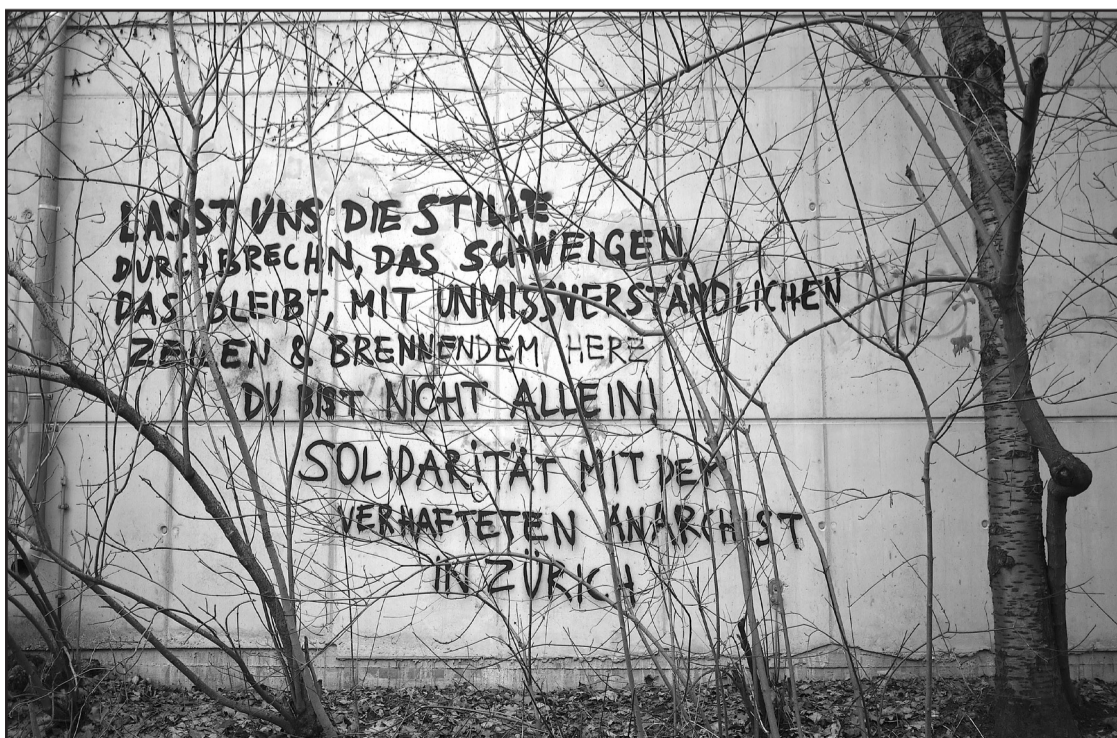 LASST UNS DIE STILLE
DURCHBRECHN, DAS SCHWEIGEN,
DAS BLEIBT, MIT UNMISSVERSTÄNDLICHEN
ZEILEN & BRENNENDEM HERZ
DU BIST NICHT ALLEIN!
SOLIDARITÄT MIT DEM
VERHAFTETEN ANARCHIST
IN ZÜRICH